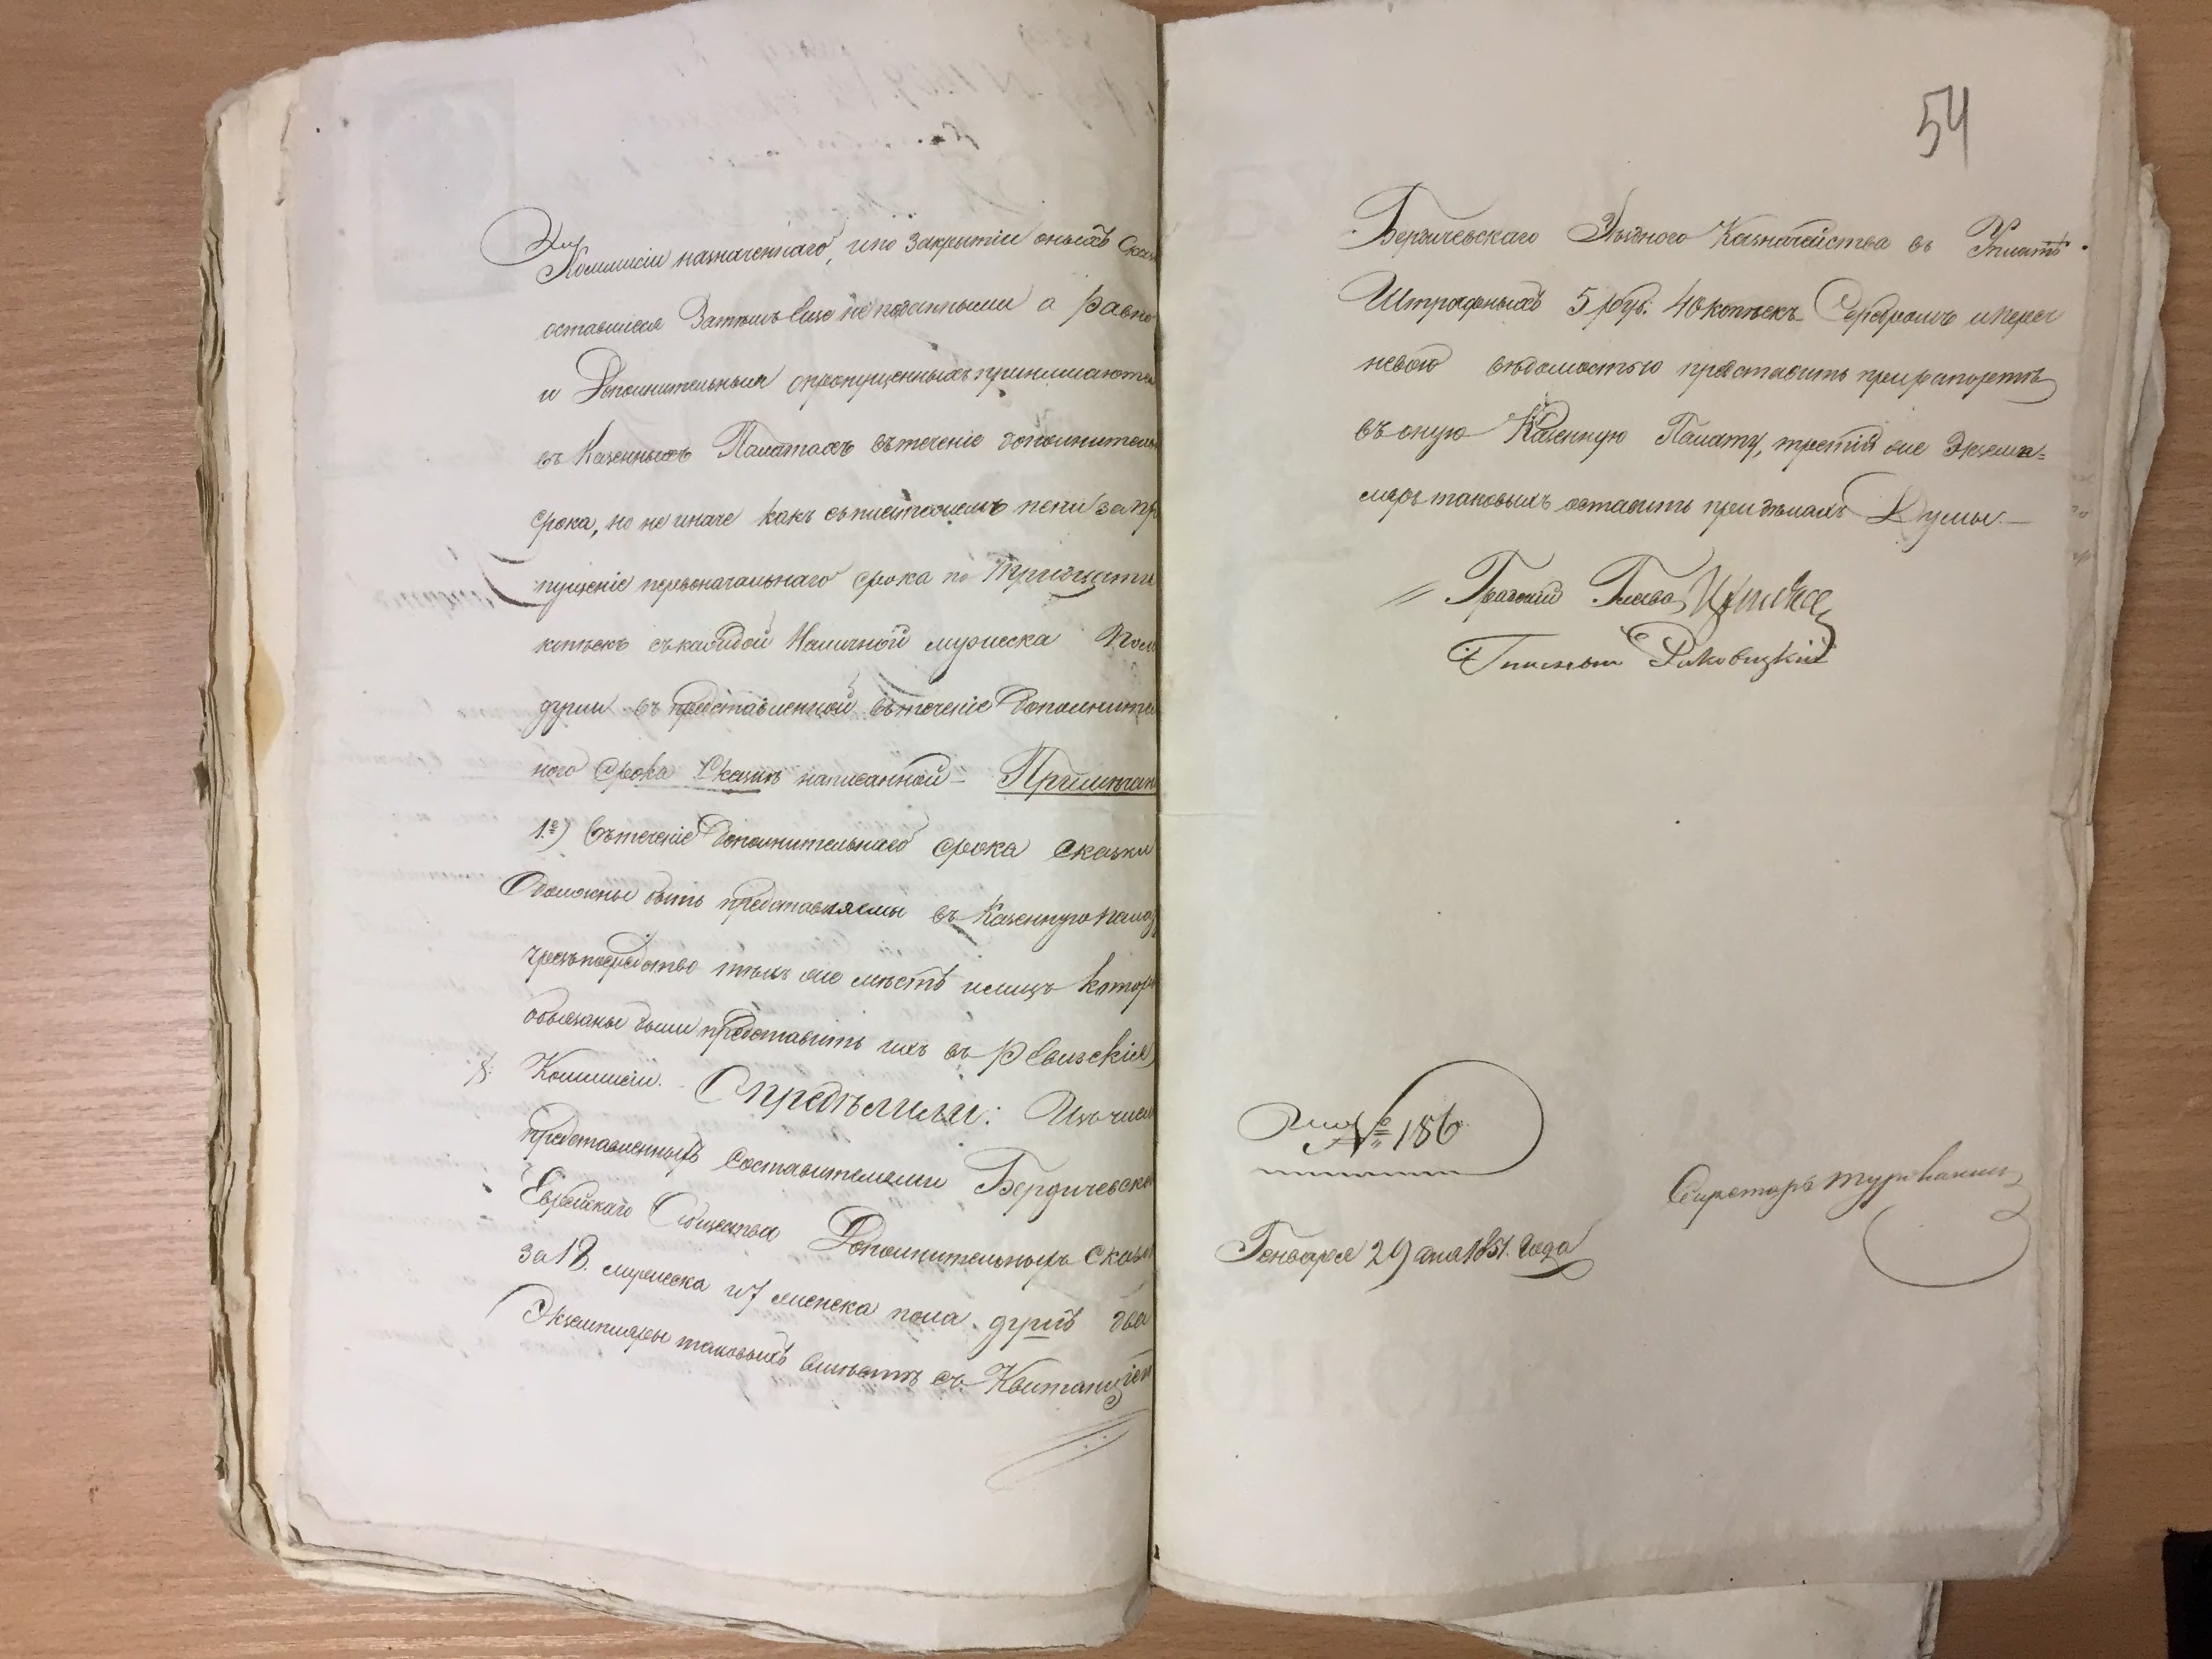 Коммисіи назначеннаго, ипо закрытіи оныхъ Сказ
оставшіеся Затѣмъ Еще не поданными а равно
и Дополнительныя опропущенныхъ принимаются
въ Казенныхъ Палатахъ втеченіе дополнитель
срока, но не иначе какъ совзысканіемъ пени за пр
пущеніе первоначальнаго срока по тридцати
копѣекъ скаждой Наличной мужеска пола
души въ представленной втеченіе Дополните
наго срока Сказкѣ написанной – Примѣчан
1.е) Втеченіе Дополнительнаго срока сказки
должны быть представляемы въ Казенную палат
чрезъ посредство тѣхъ же мѣстъ илицъ котор
обязаны были представить ихъ въ Ревизскія
Коммисіи. Опредѣлили: Изъ числа
представленныхъ Составителями Бердичевска
Еврейскаго Общества Дополнительныхъ Сказокъ
за 18. мужеска и 7 женска пола душъ два
Экземпляры таковыхъ вмѣстѣ съ Квитанціею
54
Бердичевскаго Уѣзднаго Казначейства въ Уплатѣ
Штрафныхъ 5 руб. 40 копѣекъ Серебромъ и переч
невою вѣдомостью представить прирапортѣ
въ оную Казенную Палату, третій же Экзем=
пляръ таковыхъ оставить придѣлахъ Думы. –
Градскій Глава
Гласный Раковицкій
№ 186
Секретарь
Генваря 29 дня 1851. Года